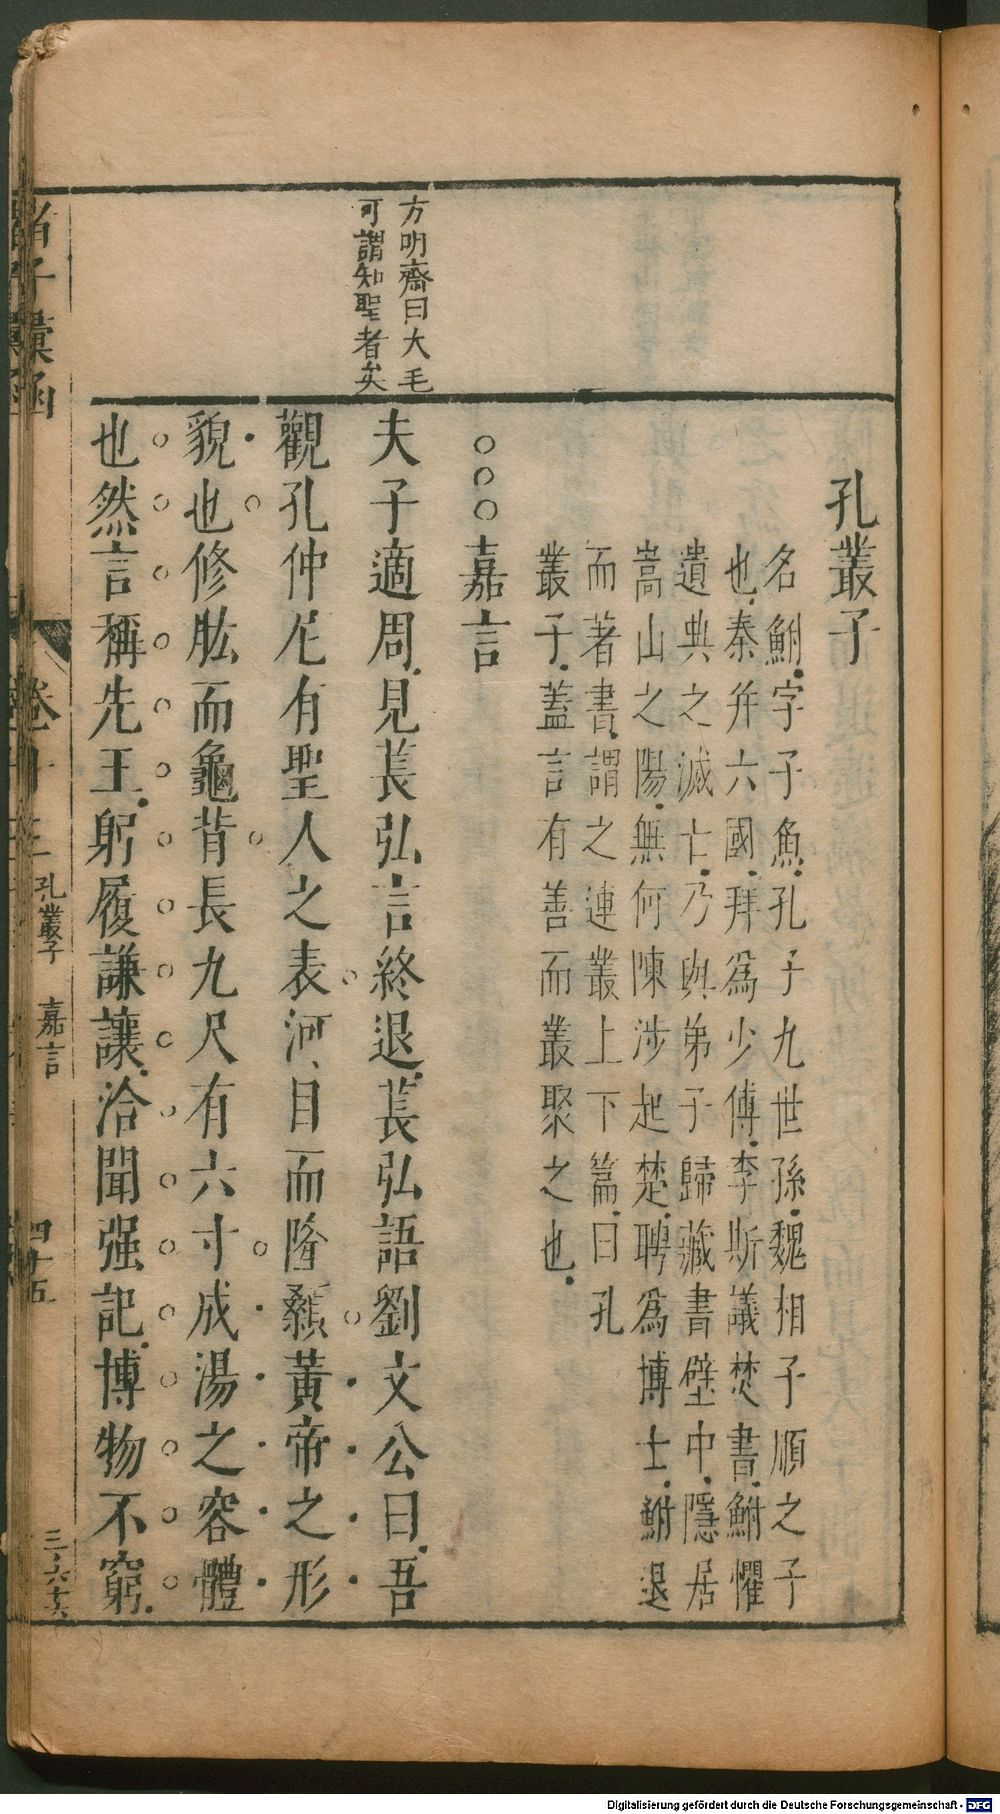 方明齋曰大毛
可謂知聖者矣
孔叢子
名鮒字子魚孔子九世孫魏相子順之子
也秦并六國拜爲少傅李斯議焚書鮒懼
遺典之滅亡乃與弟子歸藏書壁中隱居
嵩山之陽無何陳涉起楚聘爲博士鮒退
而著書謂之連叢上下篇曰孔
叢子蓋言有善而叢聚之也
○○○嘉言
夫子適周見萇弘言終退萇弘語劉文公曰吾
觀孔仲尼有聖人之表河目而隆顙黃帝之形
貌也修肱而龜背長九尺有六寸成湯之容體
也然言稱先王躬履謙讓洽聞强記博物不窮
諸子彙函
卷十三
孔叢子 嘉言
四十五
Digitalisierung gefördert durch die Deutsche Forschungsgemeinschaft - DFG